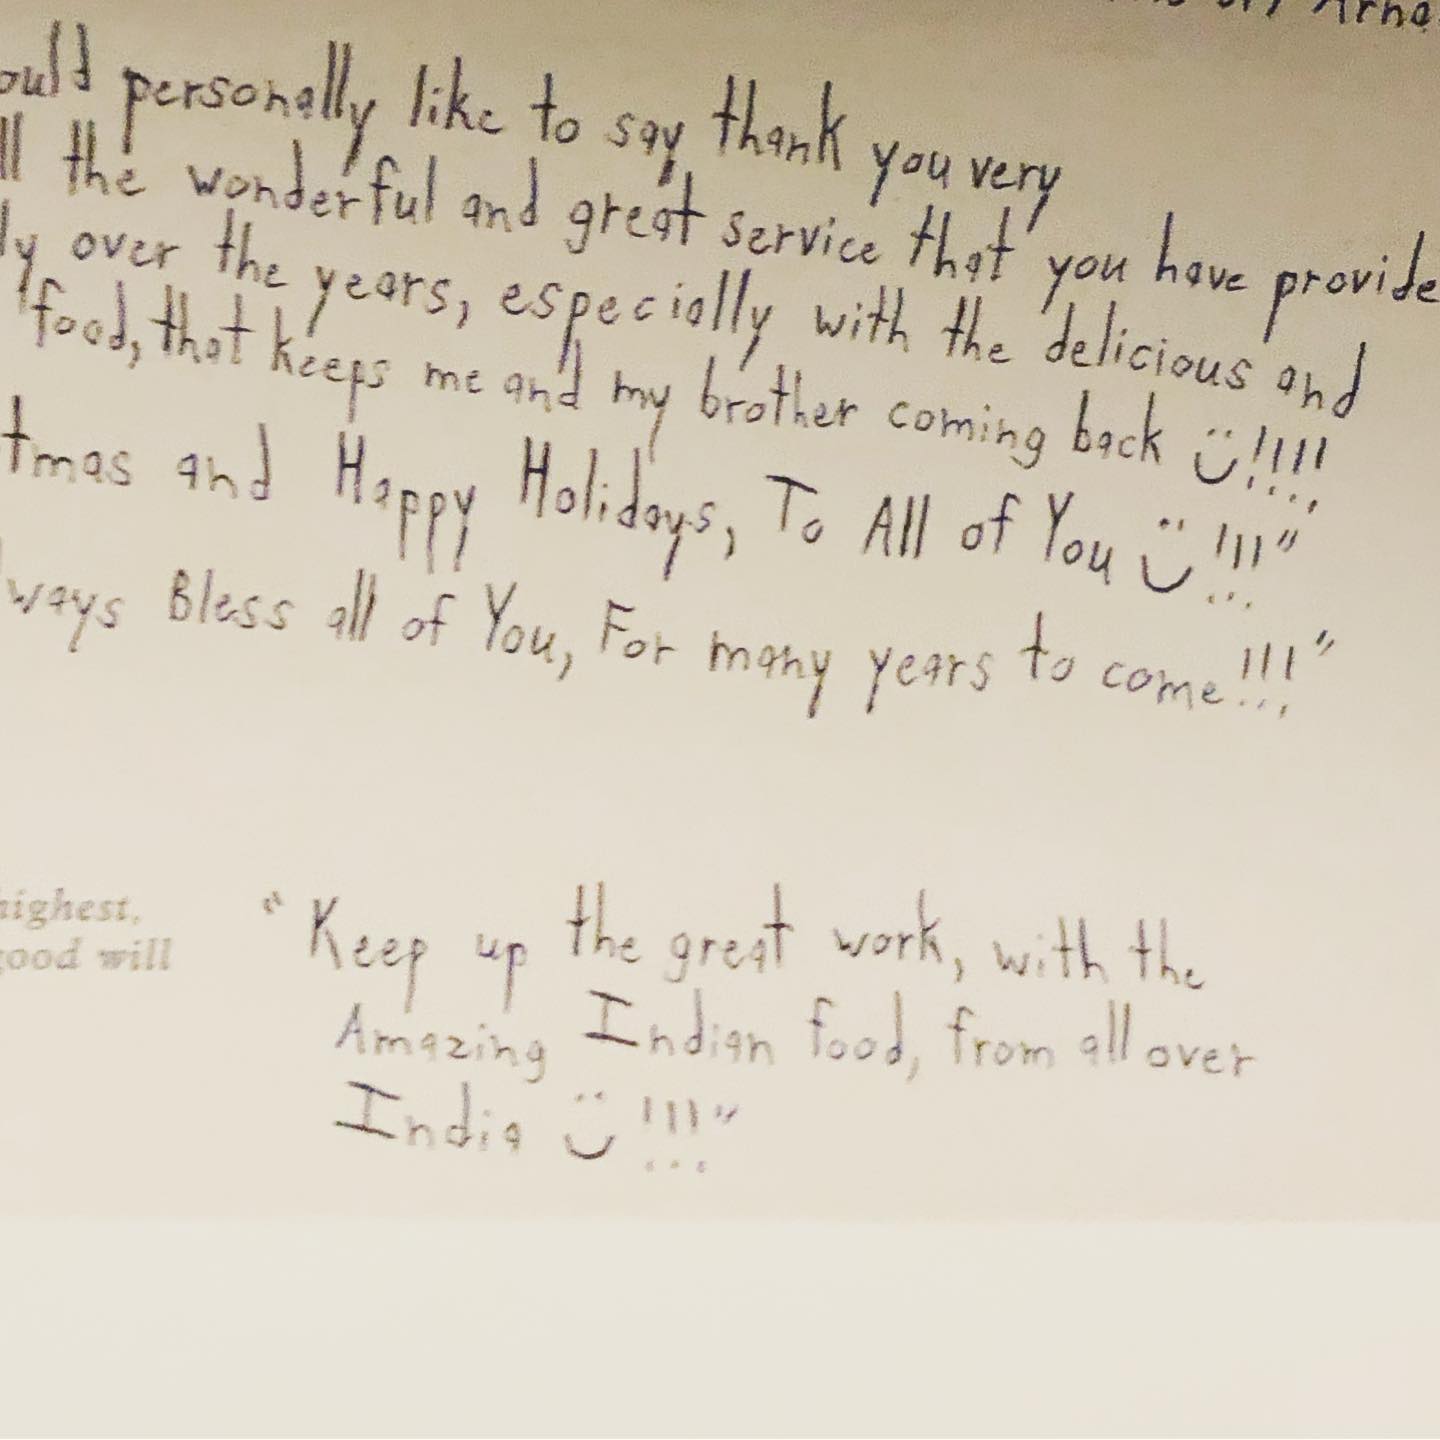 Arna
ould personally like to say thank you very
ll the wonderful and great service that you have provide
ly over the years, especially with the delicious and
food, that keeps me and my brother coming back !!!!
tmas and Happy Holidays, To All of You !!!"
ways Bless all of You, For many years to come!!!"
highest,
good will
"Keep up the great work, with the
Amazing Indian food, from all over
India !!!"